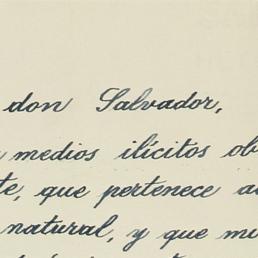 don Salvador,
medios ilícitos ob
te, que pertenece a
natural, y que mu